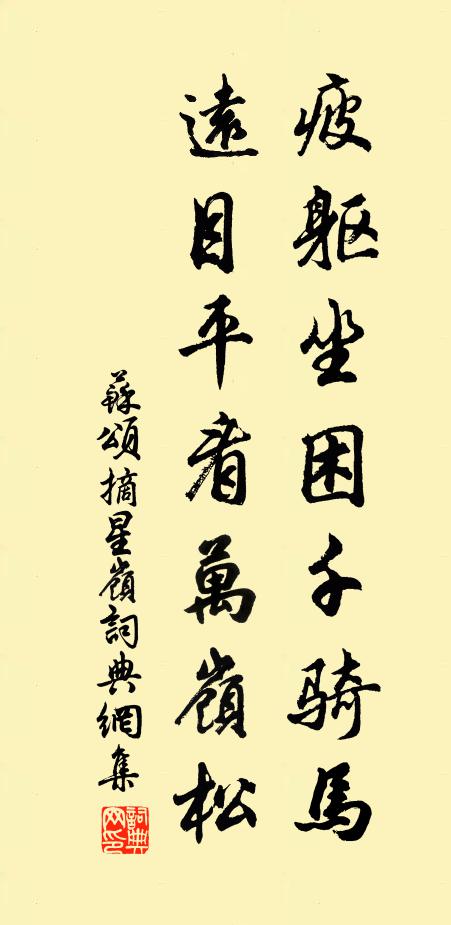 疲軀坐困千騎馬
遠目平看萬嶺松
蘇頌摘星嶺詞典網集
詞典网印